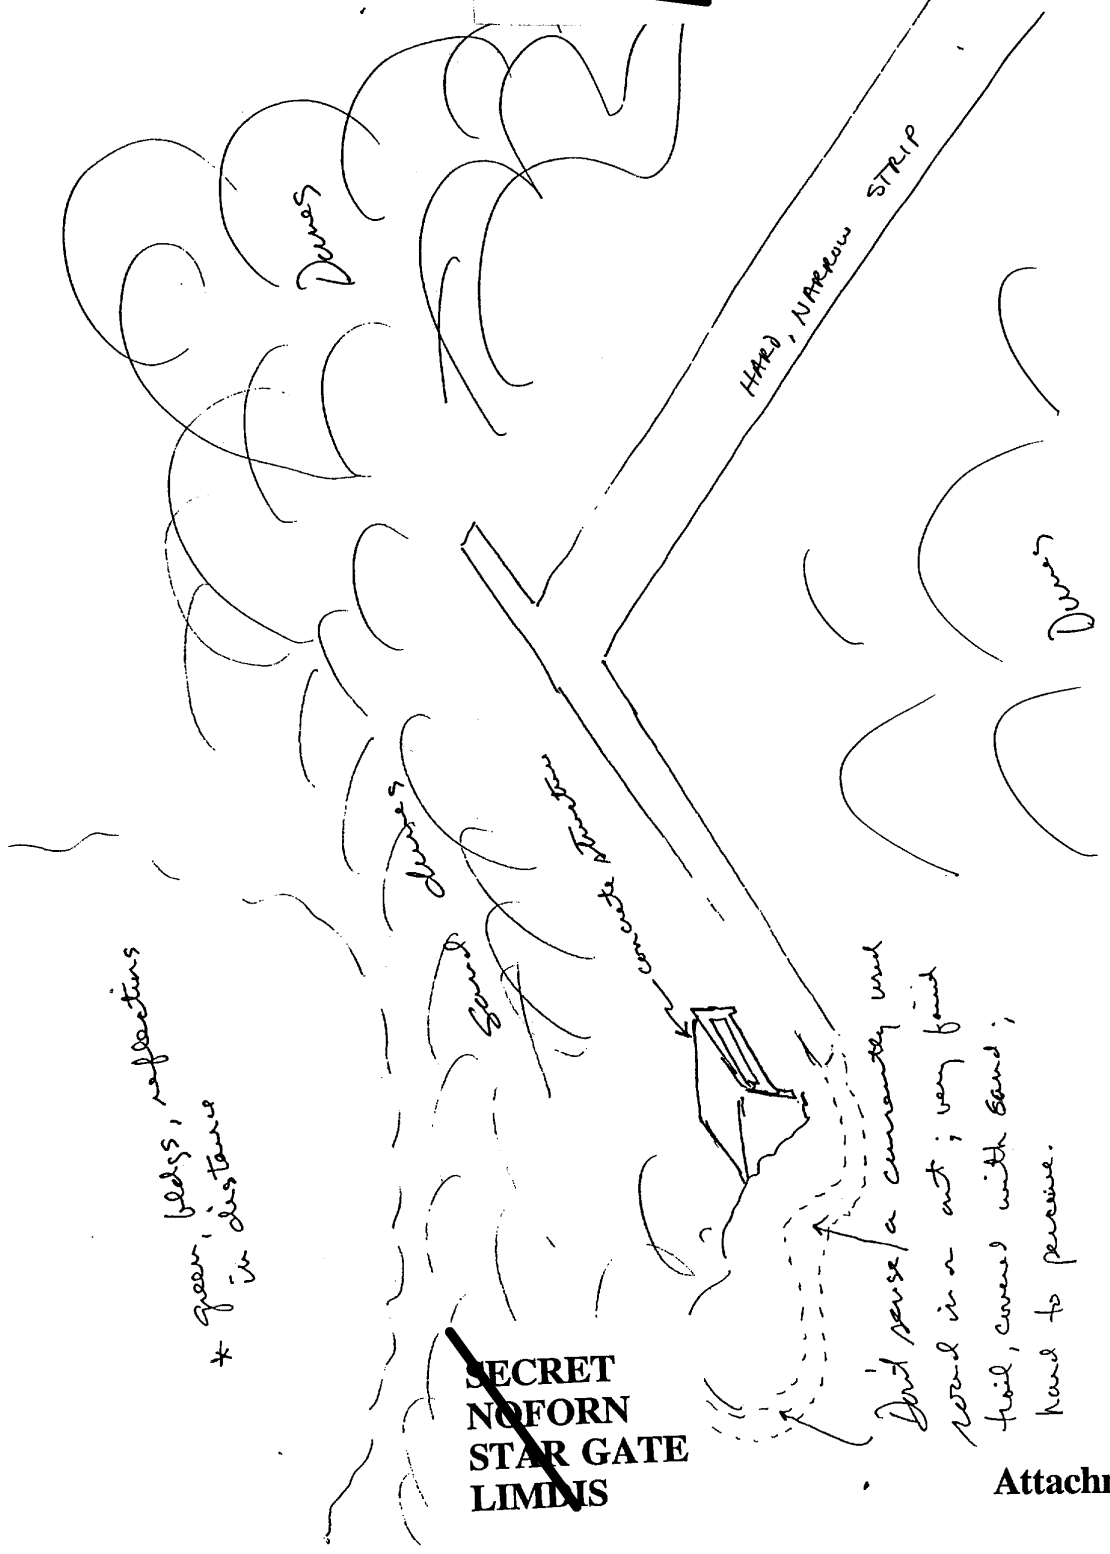 Dunes
HARD, NARROW STRIP
Dunes
Sand dunes
concrete structure
* green, bldgs, reflections
in distance
Don't sense a currently used
road in or out; very faint
trail, covered with sand;
hard to perceive.
SECRET
NOFORN
STAR GATE
LIMDIS
Attachm